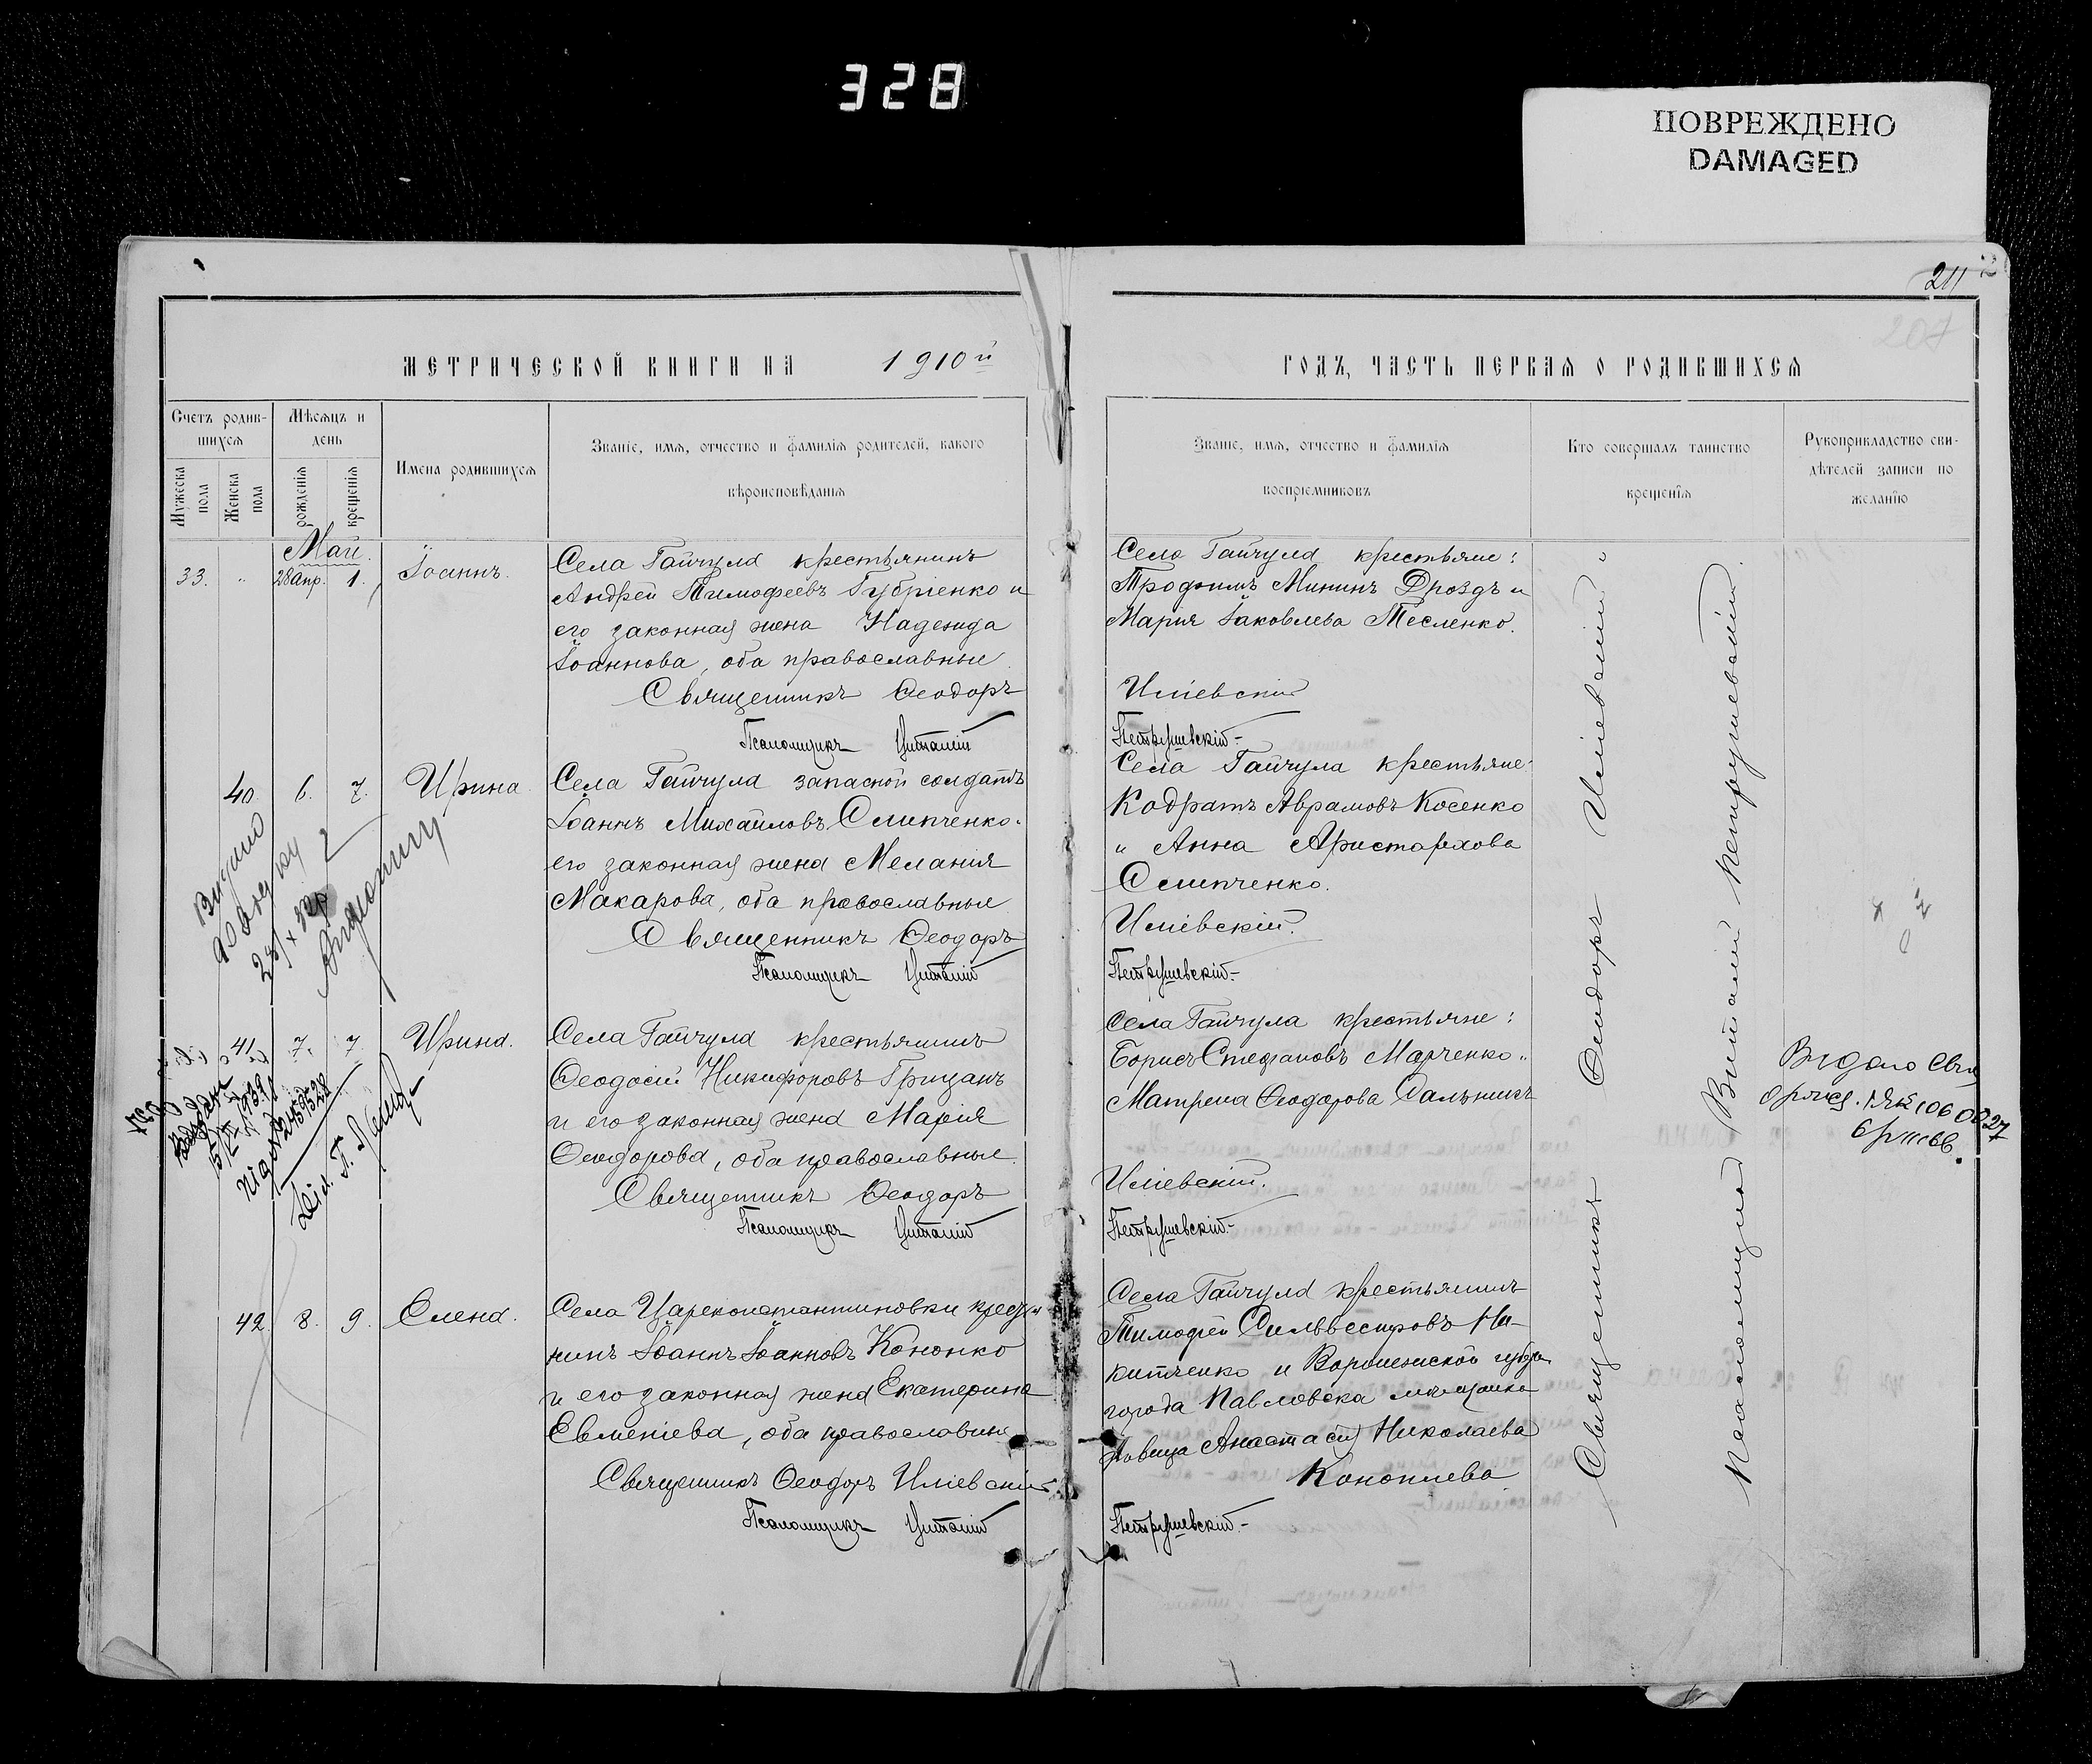 328
ПОВРЕЖДЕНО
DAMAGED
211
207
МЕТРИЧЕСКОЙ КНИГИ НА 1910й
ГОДЪ, ЧАСТЬ ПЕРВАЯ О РОДИВШИХСЯ
Счетъ родив-
шихся
Мужеска пола
Женска пола
Мѣсяцъ и
день
рожденія
крещенія
Имена родившихся
Званіе, имя, отчество и фамилія родителей, какого
вѣроисповѣданія
Званіе, имя, отчество и фамилія
воспріемниковъ
Кто совершалъ таинство
крещенія
Рукоприкладство сви-
дѣтелей записи по
желанію
Май.
33. " 28 апр. 1. Іоаннъ.
Села Гайчула крестьянинъ
Андрей Тимофеевъ Губріенко и
его законная жена Надежда
Іоаннова, оба православные
Священникъ Феодоръ
Псаломщикъ Виталій
Села Гайчула крестьяне:
Трофимъ Мининъ Дроздъ и
Марія Іаковлева Тесленко.
Иліевскій
Петрушевскій
40. 6. 7. Ирина
Села Гайчула запасной солдатъ
Іоаннъ Михайловъ Слипченко
его законная жена Мелания
Макарова, оба православные
Священникъ Феодоръ
Псаломщикъ Виталій
Села Гайчула крестьяне:
Кодратъ Аврамовъ Косенко
" Анна Аристархова
Слипченко.
Иліевскій.
Петрушевскій
Видано
довідку
41. 7. 7. Ирина.
Села Гайчула крестьянинъ
Феодосій Никифоровъ Грицанъ
и его законная жена Марія
Феодорова, оба православные.
Священникъ Феодоръ
Псаломщикъ Виталій
Села Гайчула крестьяне:
Борисъ Стефановъ Марченко
Матрена Феодорова Дальникъ
Иліевскій.
Петрушевскій
Видано
42. 8. 9. Елена.
Села Цареконстантиновки крестья
нинъ Іоаннъ Іоанновъ Кононко
и его законная жена Екатерина
Евменіева, оба православные
Священникъ Феодоръ Иліевскій
Псаломщикъ Виталій
Села Гайчула крестьянинъ
Тимофей Сильвестровъ Ни-
китченко и Воронежской губер.
города Павловска мещанка
девица Анастасія Николаева
Коноплева
Петрушевскій
Священникъ Феодоръ Иліевскій
Псаломщикъ Виталій Петрушевскій